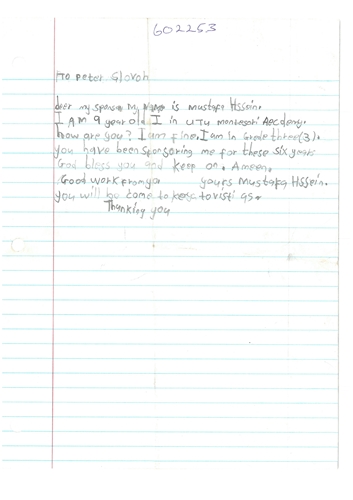 602253
To Peter Glovoh
dear my sponsor My Name is mustafa Hssein.
I AM 9 year old I in UTU montesari Aecdemy.
how are you? I am fine. I am in Grade three(3).
you have been sponsoring me for these six years
God bless you and keep on. Ameen.
Good work from yo yours Mustafa Hssein.
you will be come to to visti as.
Thanking you